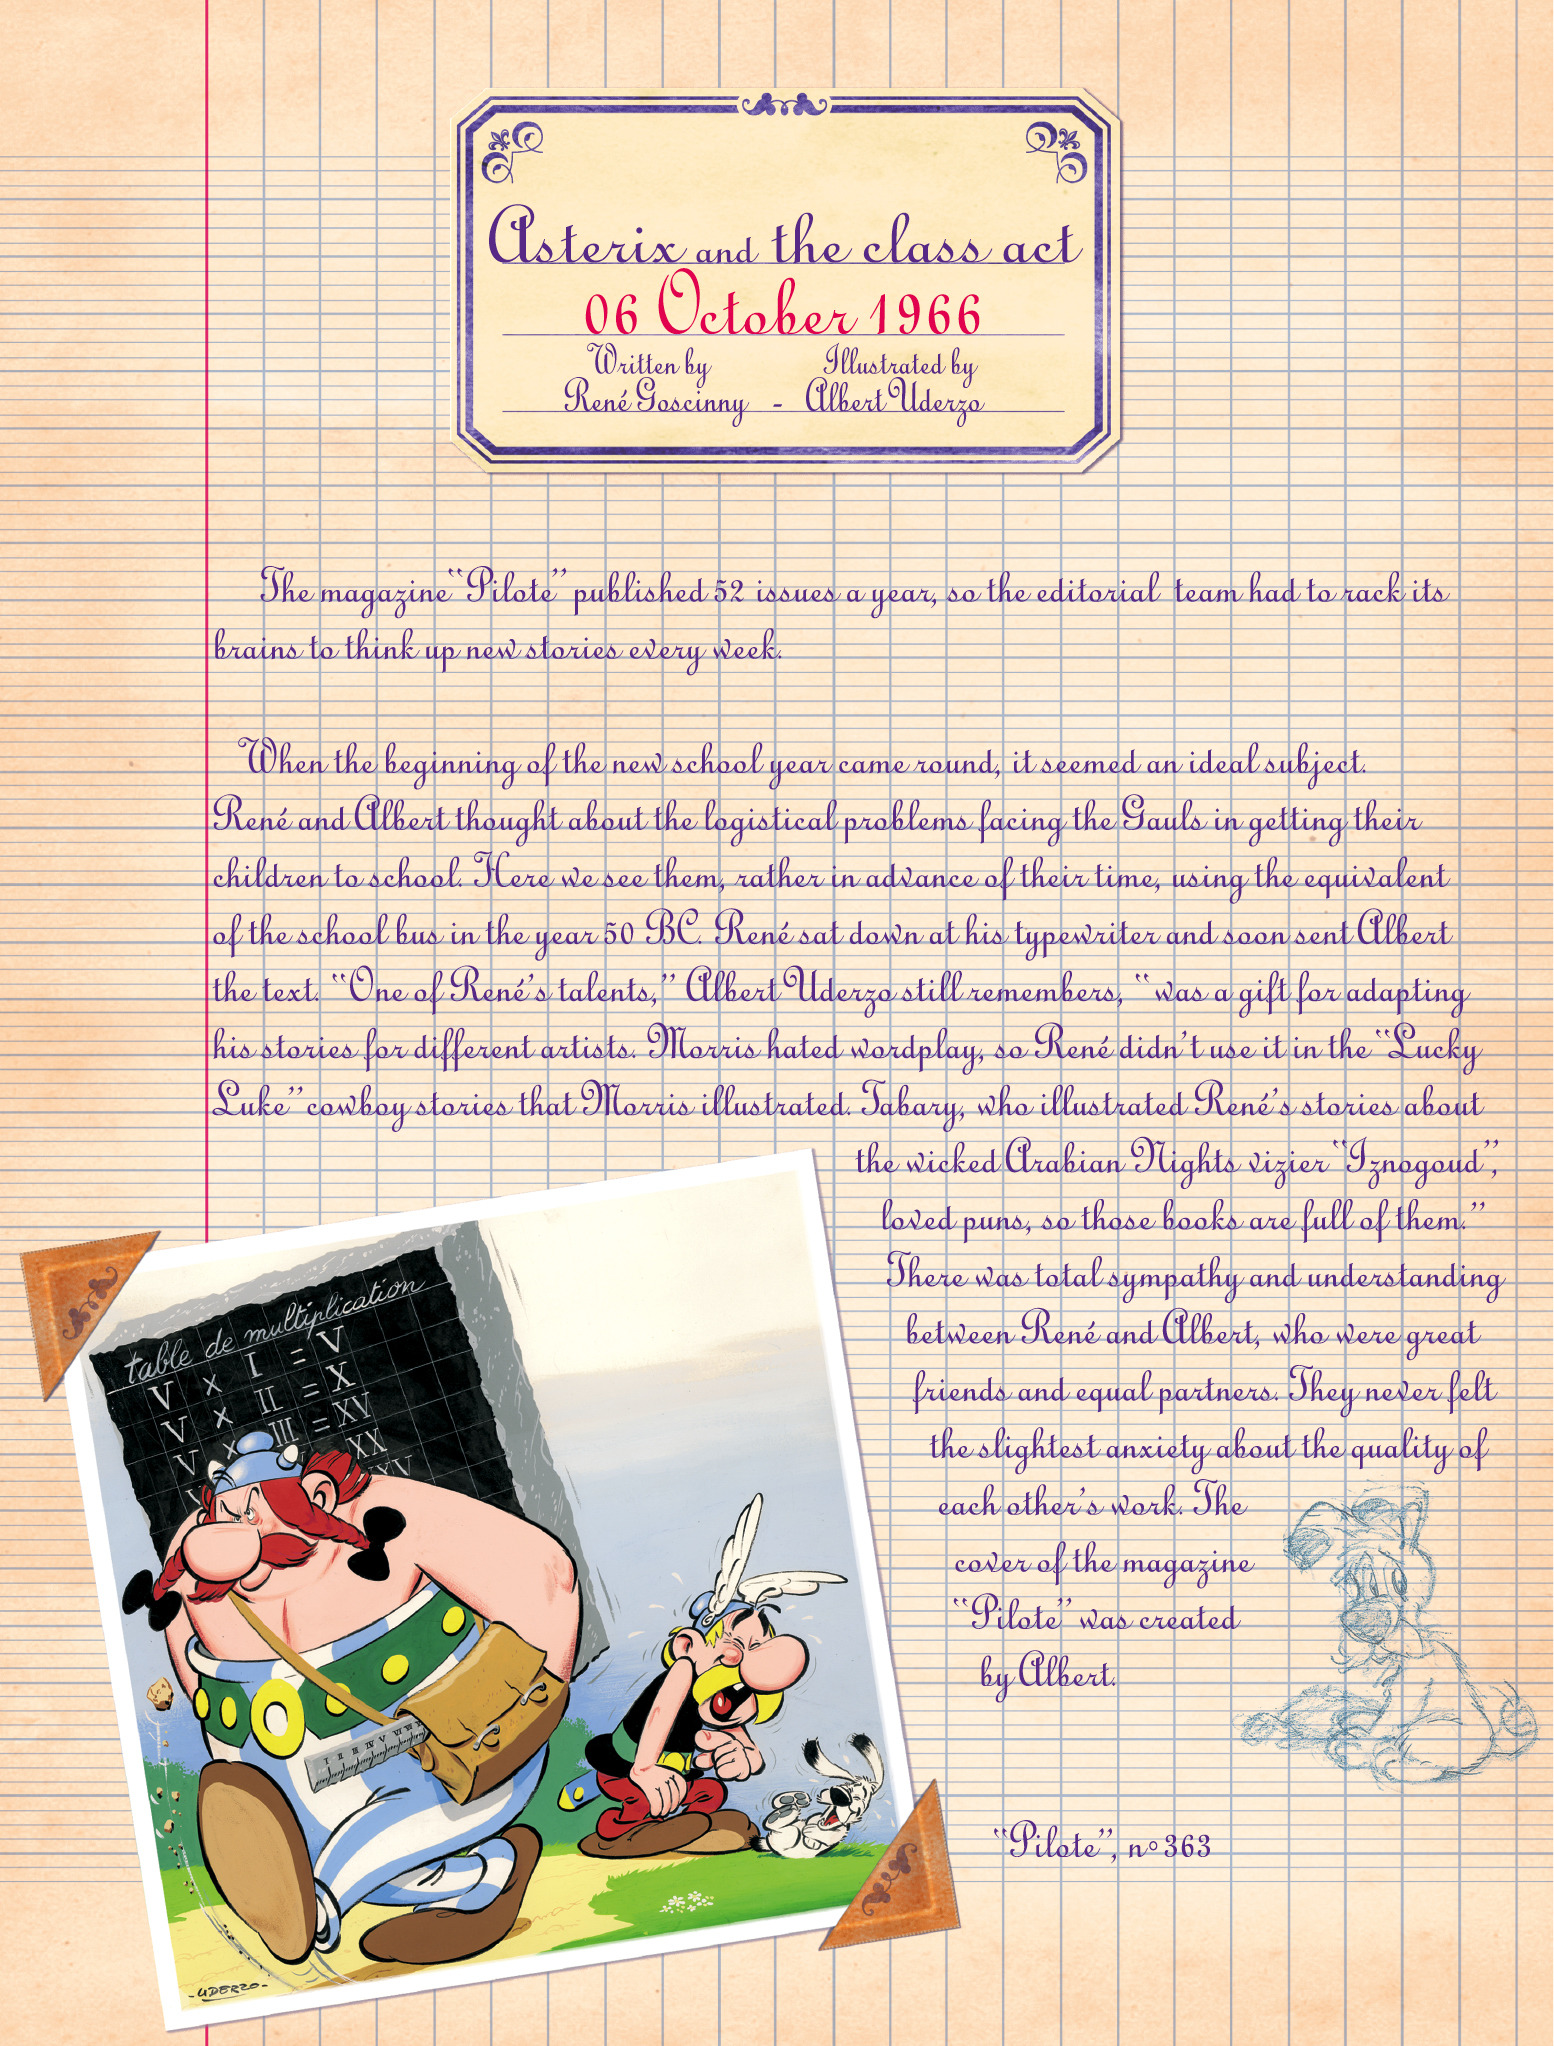 Asterix and the class act
06 October 1966
Written by
René Goscinny
-
Illustrated by
Albert Uderzo
The magazine “Pilote” published 52 issues a year, so the editorial team had to rack its
brains to think up new stories every week.
When the beginning of the new school year came round, it seemed an ideal subject.
René and Albert thought about the logistical problems facing the Gauls in getting their
children to school. Here we see them, rather in advance of their time, using the equivalent
of the school bus in the year 50 BC. René sat down at his typewriter and soon sent Albert
the text. “One of René’s talents,” Albert Uderzo still remembers, “was a gift for adapting
his stories for different artists. Morris hated wordplay, so René didn’t use it in the “Lucky
Luke” cowboy stories that Morris illustrated. Tabary, who illustrated René’s stories about
the wicked Arabian Nights vizier “Iznogoud”,
loved puns, so those books are full of them.”
There was total sympathy and understanding
between René and Albert, who were great
friends and equal partners. They never felt
the slightest anxiety about the quality of
each other’s work. The
cover of the magazine
“Pilote” was created
by Albert.
table de multiplication
V x I = V
V x II = X
V x III = XV
XX
XXV
I II III IV V VI VII
“Pilote”, n°363
-UDERZO-